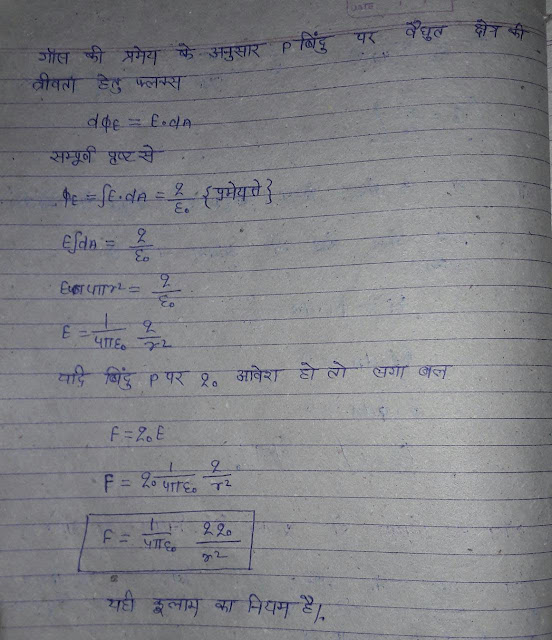 गॉस की प्रमेय के अनुसार P बिंदु पर वैद्युत क्षेत्र की
तीव्रता हेतु फ्लक्स
dΦE = E.dA
सम्पूर्ण पृष्ट से
ΦE = ∫E.dA = q/ε₀ {प्रमेय से}
E∫dA = q/ε₀
E 4πr² = q/ε₀
E = 1/4πε₀ q/r²
यदि बिंदु P पर q₀ आवेश हो तो लगा बल
F = q₀E
F = q₀ 1/4πε₀ q/r²
F = 1/4πε₀ qq₀/r²
यही कूलाम का नियम है।